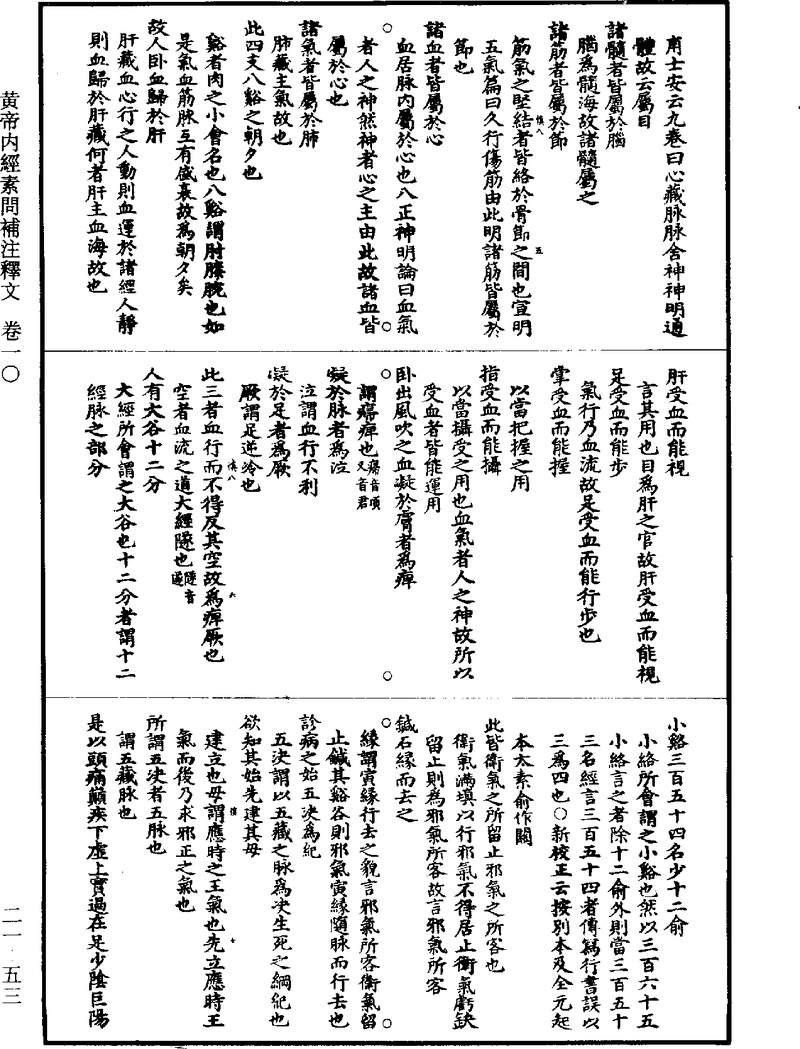 黄帝内經素問補注釋文　卷一〇
二一·五三
甫士安云九卷曰心藏脉脉舍神神明通
體故云屬目
諸髓者皆屬於腦
腦爲髓海故諸髓屬之
諸筋者皆屬於節
筋氣之堅結者皆絡於骨節之間也宣明
五氣篇曰久行傷筋由此明諸筋皆屬於
節也
諸血者皆屬於心
血居脉内屬於心也八正神明論曰血氣
者人之神然神者心之主由此故諸血皆
屬於心也
諸氣者皆屬於肺
肺藏主氣故也
此四支八谿之朝夕也
谿者肉之小會名也八谿謂肘膝腕也如
是氣血筋脉互有盛衰故爲朝夕矣
故人卧血歸於肝
肝藏血心行之人動則血運於諸經人靜
則血歸於肝藏何者肝主血海故也
肝受血而能視
言其用也目爲肝之官故肝受血而能視
足受血而能步
氣行乃血流故足受血而能行步也
掌受血而能握
以當把握之用
指受血而能攝
以當攝受之用也血氣者人之神故所以
受血者皆能運用
卧出風吹之血凝於膚者爲痹
謂𤸷痹也𤸷音頑又音君
凝於脉者爲泣
泣謂血行不利
凝於足者爲厥
厥謂足逆冷也
此三者血行而不得反其空故爲痹厥也
空者血流之道大經隧也隧音遂
人有大谷十二分
大經所會謂之大谷也十二分者謂十二
經脉之部分
小谿三百五十四名少十二俞
小絡所會謂之小谿也然以三百六十五
小絡言之者除十二俞外則當三百五十
三名經言三百五十四者傳寫行書誤以
三爲四也○新校正云按別本及全元起
本太素俞作關
此皆衛氣之所留止邪氣之所客也
衛氣滿填以行邪氣不得居止衛氣虧缺
留止則爲邪氣所客故言邪氣所客
鍼石緣而去之
緣謂寅緣行去之貌言邪氣所客衛氣留
止鍼其谿谷則邪氣寅緣隨脉而行去也
診病之始五決爲紀
五決謂以五藏之脉爲決生死之綱紀也
欲知其始先建其母
建立也母謂應時之王氣也先立應時王
氣而後乃求邪正之氣也
所謂五決者五脉也
謂五藏脉也
是以頭痛巔疾下虛上實過在足少陰巨陽